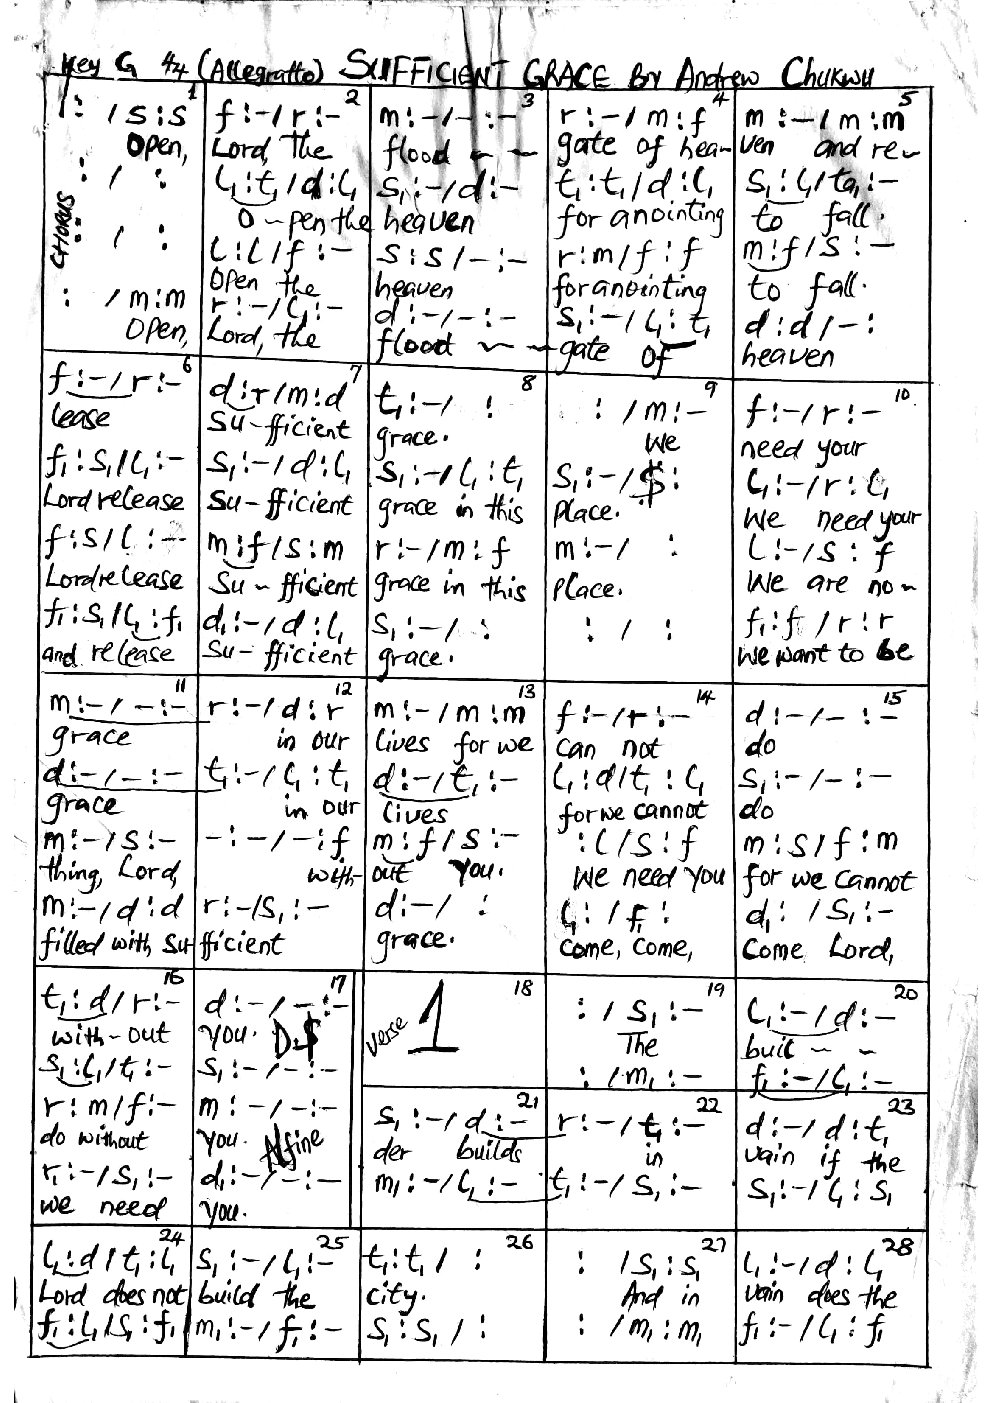 Key G 4/4 (Allegratto) SUFFICIENT GRACE By Andrew Chukwu
CHORUS
1
: / s : s
Open,
: / :
: / :
: / m : m
Open,
2
f : – / r : –
Lord, the
l₁ : t₁ / d : l₁
O – pen the
l : l / f : –
Open the
r : – / l₁ : –
Lord, the
3
m : – / – : –
flood ~ ~
s₁ : – / d : –
heaven
s : s / – : –
heaven
d : – / – : –
flood ~ ~
4
r : – / m : f
gate of hea–
t₁ : t₁ / d : l₁
for anointing
r : m / f : f
for anointing
s₁ : – / l₁ : t₁
gate of
5
m : – / m : m
ven and re–
s₁ : l₁ / ta₁ : –
to fall.
m : f / s : –
to fall.
d : d / – :
heaven
6
f : – / r : –
lease
f₁ : s₁ / l₁ : –
Lord release
f : s / l : –
Lord release
f₁ : s₁ / l₁ : f₁
and release
7
d : r / m : d
Su–fficient
s₁ : – / d : l₁
Su–fficient
m : f / s : m
Su–fficient
d₁ : – / d : l₁
Su–fficient
8
t₁ : – / :
grace.
s₁ : – / l₁ : t₁
grace in this
r : – / m : f
grace in this
s₁ : – / :
grace.
9
: / m : –
We
s₁ : – / $ :
Place.
m : – / :
Place.
: / :
10
f : – / r : –
need your
l₁ : – / r : l₁
We need your
l : – / s : f
We are no–
f₁ : f₁ / r : r
We want to be
11
m : – / – : –
grace
d : – / – : –
grace
m : – / s : –
thing, Lord,
m : – / d : d
filled with su–
12
r : – / d : r
in our
t₁ : – / l₁ : t₁
in our
– : – / – : f
with–
r : – / s₁ : –
fficient
13
m : – / m : m
lives for we
d : – / t₁ : –
lives
m : f / s : –
out you.
d : – / :
grace.
14
f : – / r : –
can not
l₁ : d / t₁ : l₁
for we cannot
: l / s : f
We need you
l₁ : / f₁ :
Come, come,
15
d : – / – : –
do
s₁ : – / – : –
do
m : s / f : m
for we cannot
d₁ : / s₁ : –
Come Lord,
16
t₁ : d / r : –
with–out
s₁ : l₁ / t₁ : –
r : m / f : –
do without
r₁ : – / s₁ : –
we need
17
d : – / – : –
you. D.$
s₁ : – / – : –
m : – / – : –
you. Alfine
d₁ : – / – : –
you.
18
Verse 1
19
: / s₁ : –
The
: / m₁ : –
20
l₁ : – / d : –
buil ~ ~
f₁ : – / l₁ : –
21
s₁ : – / d : –
der builds
m₁ : – / l₁ : –
22
r : – / t₁ : –
in
t₁ : – / s₁ : –
23
d : – / d : t₁
vain if the
s₁ : – / l₁ : s₁
24
l₁ : d / t₁ : l₁
Lord does not
f₁ : l₁ / s₁ : f₁
25
s₁ : – / l₁ : –
build the
m₁ : – / f₁ : –
26
t₁ : t₁ / :
city.
s₁ : s₁ / :
27
: / s₁ : s₁
And in
: / m₁ : m₁
28
l₁ : – / d : l₁
vain does the
f₁ : – / l₁ : f₁